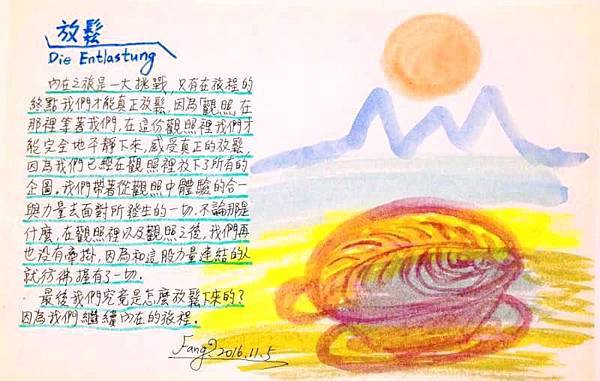 放鬆
Die Entlastung
內在之旅是一大挑戰,只有在旅程的
終點我們才能真正放鬆,因為「觀照」在
那裡等著我們,在這份觀照裡我們才
能完全地平靜下來,感受真正的放鬆,
因為我們已經在觀照裡放下了所有的
企圖。我們帶著從觀照中體驗的合一
與力量去面對所發生的一切。不論那是
什麼,在觀照裡以及觀照之後,我們再
也沒有牽掛,因為和這股力量連結的人
就彷彿擁有了一切。
最後我們究竟是怎麼放鬆下來的?
因為我們繼續內在的旅程。
Fang 2016.11.5